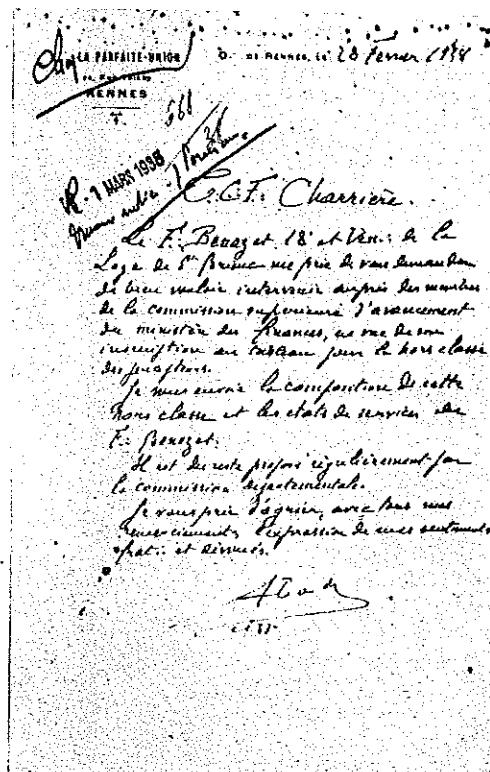 LA PARFAITE-UNION
O∴ DE RENNES, LE 28 Février 1938
RENNES
568
R. - 1 MARS 1938
T∴C∴F∴ Charrière.
Le F∴ Benozet 18e et Vén∴ de la
Loge de St Brieuc me prie de vous demander
de bien vouloir intervenir auprès des membres
de la commission supérieure d'avancement
du ministère des finances, en vue de son
inscription au tableau pour la hors classe
des percepteurs.
Je vous envoie la composition de cette
hors classe et les états de services du
F∴ Benozet.
Il est du reste proposé régulièrement par
la commission départementale.
Je vous prie d'agréer, avec tous mes
remerciements l'expression de mes sentiments
frat∴ et dévoués.